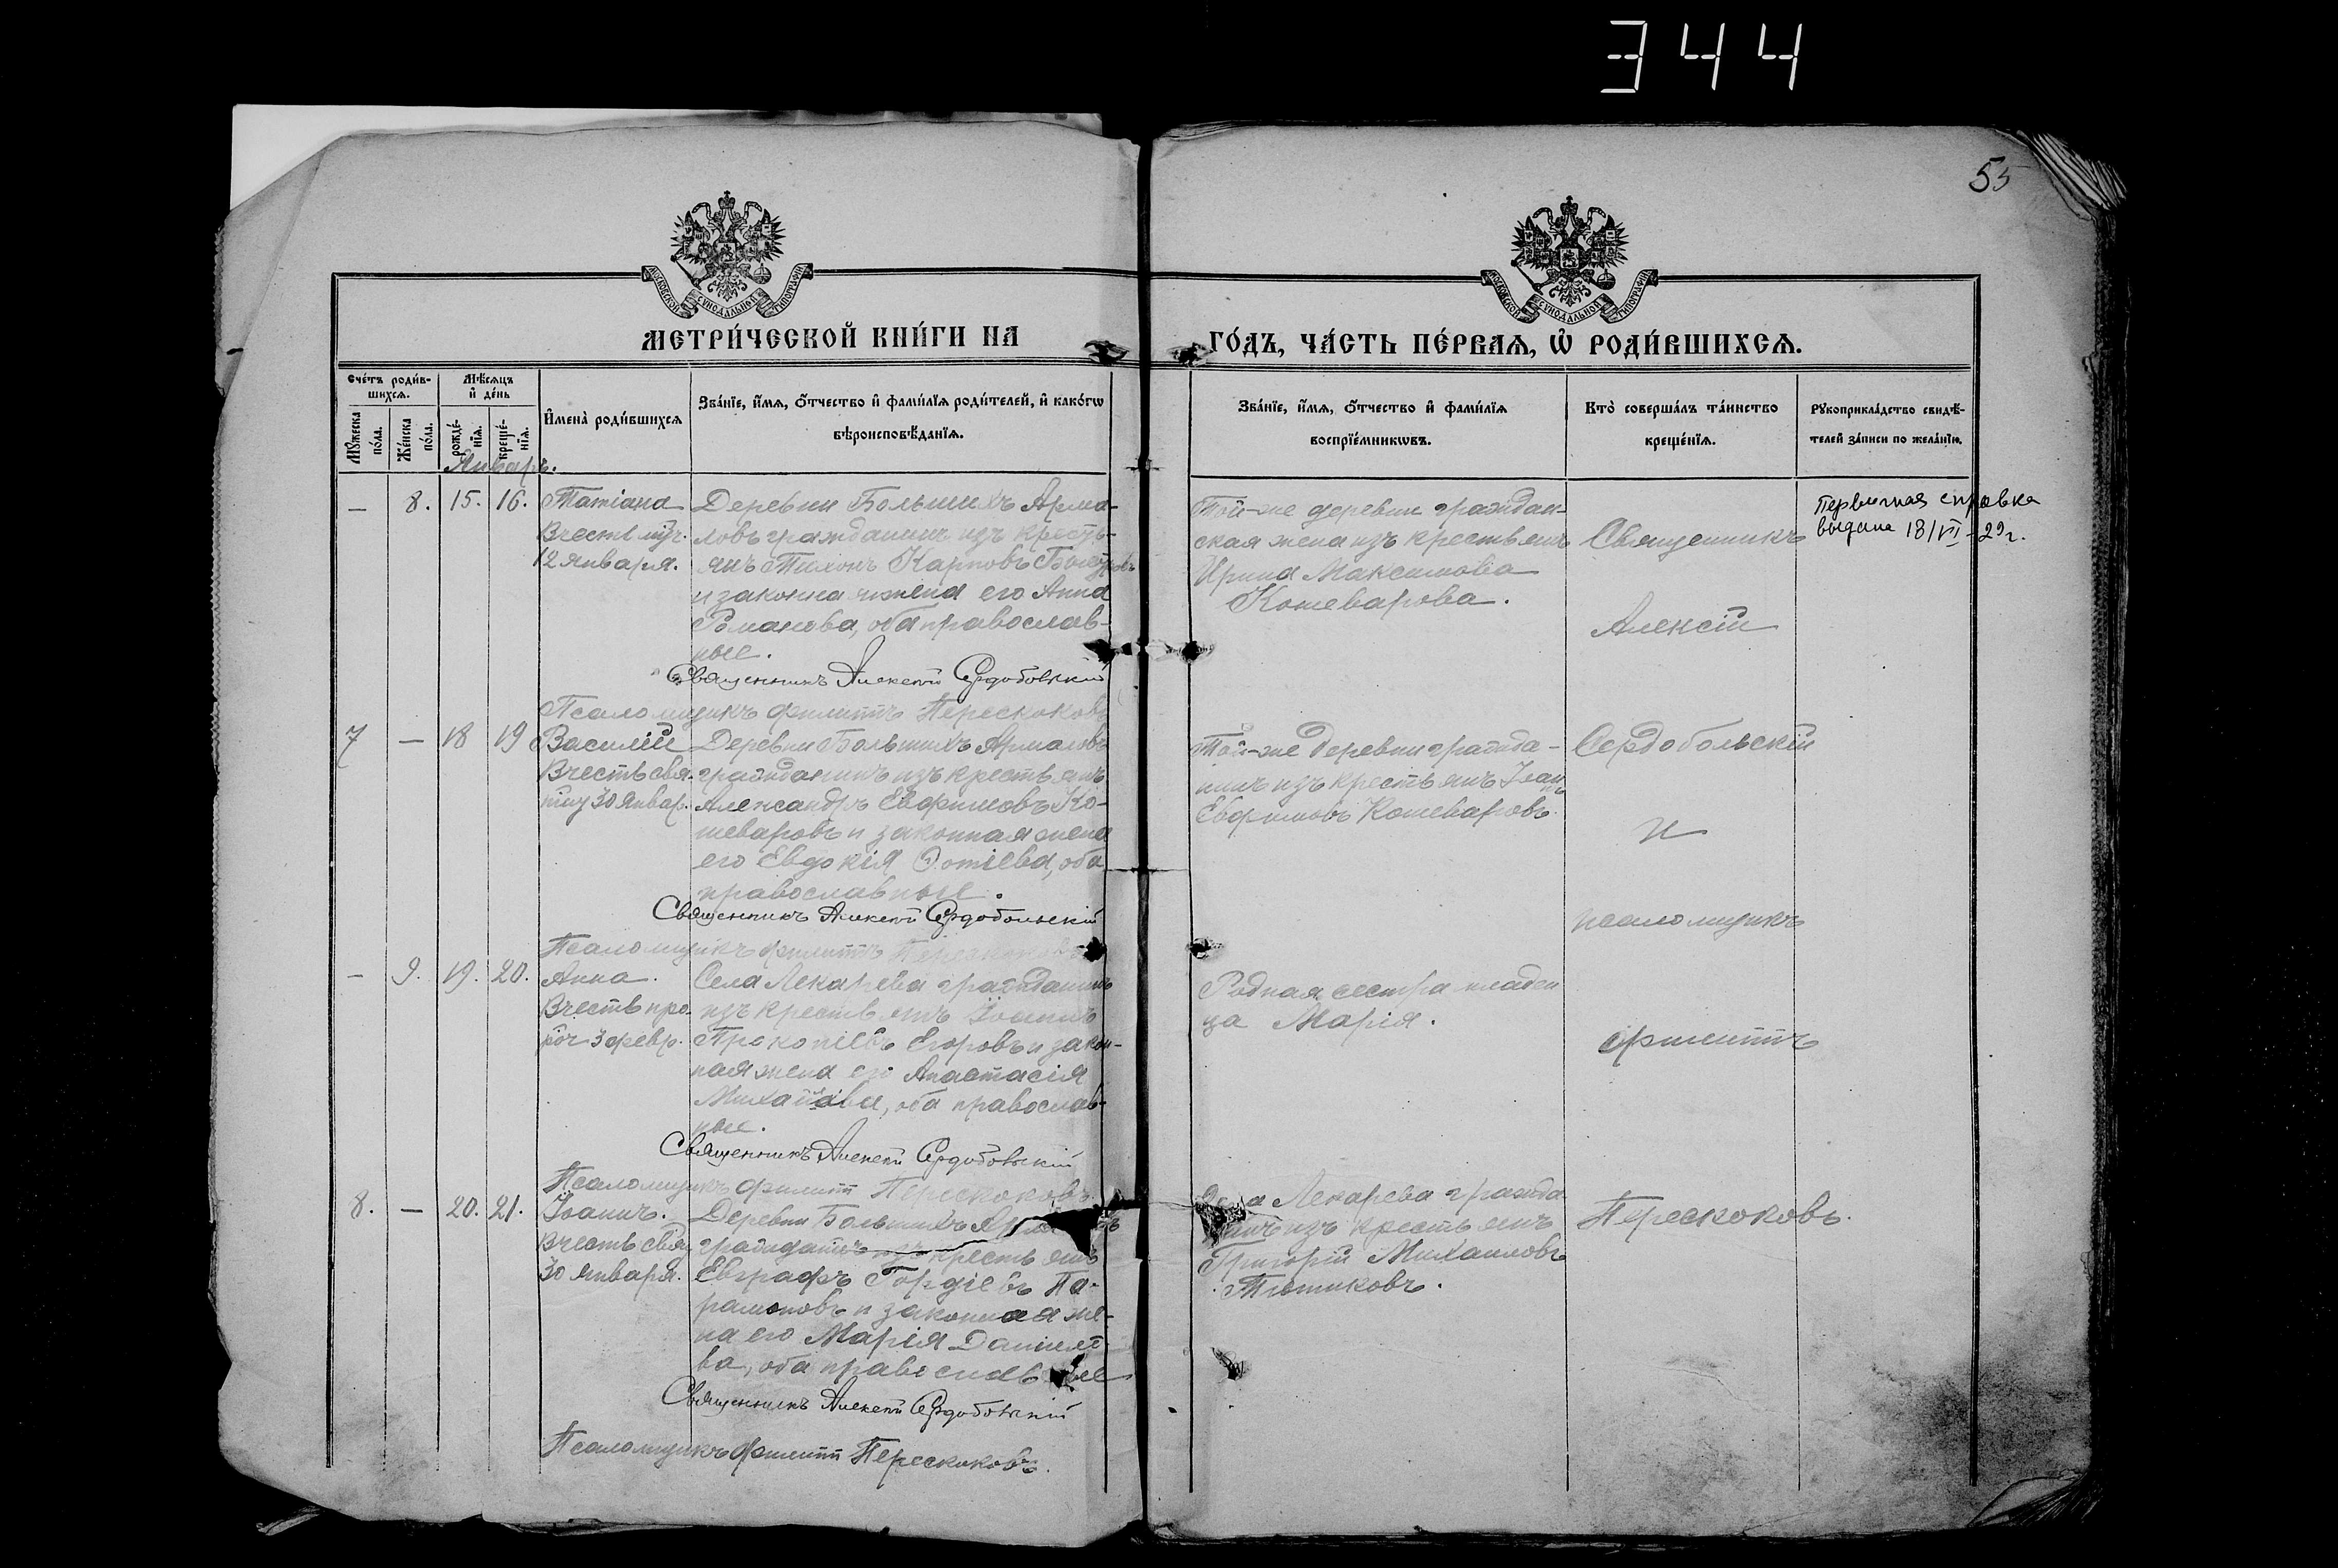 344
55
МОСКОВСКОЙ СѴНОДАЛЬНОЙ ТИПОГРАФІИ
МОСКОВСКОЙ СѴНОДАЛЬНОЙ ТИПОГРАФІИ
МЕТРИ́ЧЕСКОЙ КНИ́ГИ НА
ГО́ДЪ, ЧА́СТЬ ПЕ́РВАѦ, Ѡ҆ РОДИ́ВШИХСѦ.
Сче́тъ роди́в-
шихсѧ.
Мѣ́сѧцъ
и҆ де́нь
Мꙋ́жеска
по́ла.
Же́нска
по́ла.
рожде́-
нїѧ.
креще́-
нїѧ.
И҆мена̀ роди́вшихсѧ
Зва́нїе, и҆́мѧ, ѻ҆́тчество и҆ фами́лїѧ роди́телей, и҆ како́гѡ
вѣроисповѣ́данїѧ.
Зва́нїе, и҆́мѧ, ѻ҆́тчество и҆ фами́лїѧ
воспрїе́мникѡвъ.
Кто̀ соверша́лъ та́инство
креще́нїѧ.
Рꙋкоприкла́дство свидѣ́-
телей за́писи по жела́нїю.
Январь.
— 8. 15. 16. Татіана
Въ честь муч.
12 Января.
Деревни Большихъ Арма-
ловъ гражданинъ изъ кресть-
янъ Тихонъ Карповъ
и законная жена его Анна
Романова, оба православ-
ные.
Священникъ Алексій Сердобольскій
Псаломщикъ Филиппъ Перескоковъ
Той-же деревни граждан-
ская жена изъ крестьянъ
Ирина Максимова
Кошеварова.
Священникъ
Алексій
Первичная справка
выдана 18/VII-29г.
7 — 18 19 Василій
Въ честь свя.
30 Январ.
Деревни Большихъ Армаловъ
гражданинъ изъ крестьянъ
Александръ Евфимовъ Ко-
шеваровъ и законная жена
его Евдокія Фотіева, оба
православные.
Священникъ Алексій Сердобольскій
Псаломщикъ Филиппъ Перескоковъ
Той-же деревни гражда-
нинъ изъ крестьянъ Іоаннъ
Евфимовъ Кошеваровъ.
Сердобольскій
и
псаломщикъ
— 9. 19. 20. Анна.
Въ честь про-
роч 3 февр.
Села Лекарева гражданинъ
изъ крестьянъ Іоаннъ
Прокопіевъ Егоровъ и закон-
ная жена его Анастасія
Михайлова, оба православ-
ные.
Священникъ Алексій Сердобольскій
Псаломщикъ Филиппъ Перескоковъ
Родная сестра младен
ца Марія.
Филиппъ
8. — 20. 21. Іоаннъ.
Въ честь свят
30 Января.
Деревни Большихъ
гражданинъ изъ крестьянъ
Евграфъ Гордіевъ Па-
рамоновъ и законная же-
на его Марія Даніило-
ва, оба православные
Священникъ Алексій Сердобольскій
Псаломщикъ Филиппъ Перескоковъ.
Села Лекарева гражда
нинъ изъ крестьянъ
Григорій Михаиловъ
Тютиковъ.
Перескоковъ.